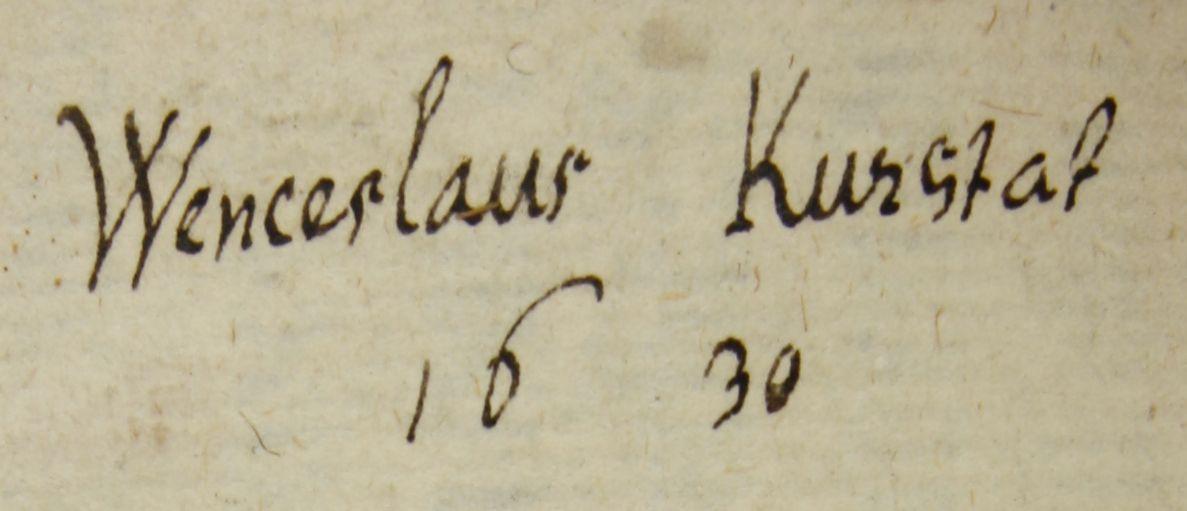 Wenceslaus Kurstat
16 30